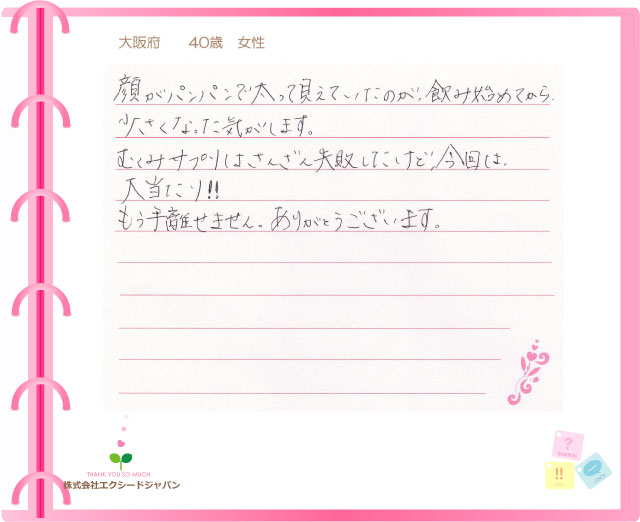 大阪府 40歳 女性
顔がパンパンで太って見えていたのが、飲み始めてから、
小さくなった気がします。
むくみサプリはさんざん失敗したけど、今回は、
大当たり!!
もう手離せません。ありがとうございます。
THANK YOU SO MUCH
株式会社エクシードジャパン
?
!!
VOICE